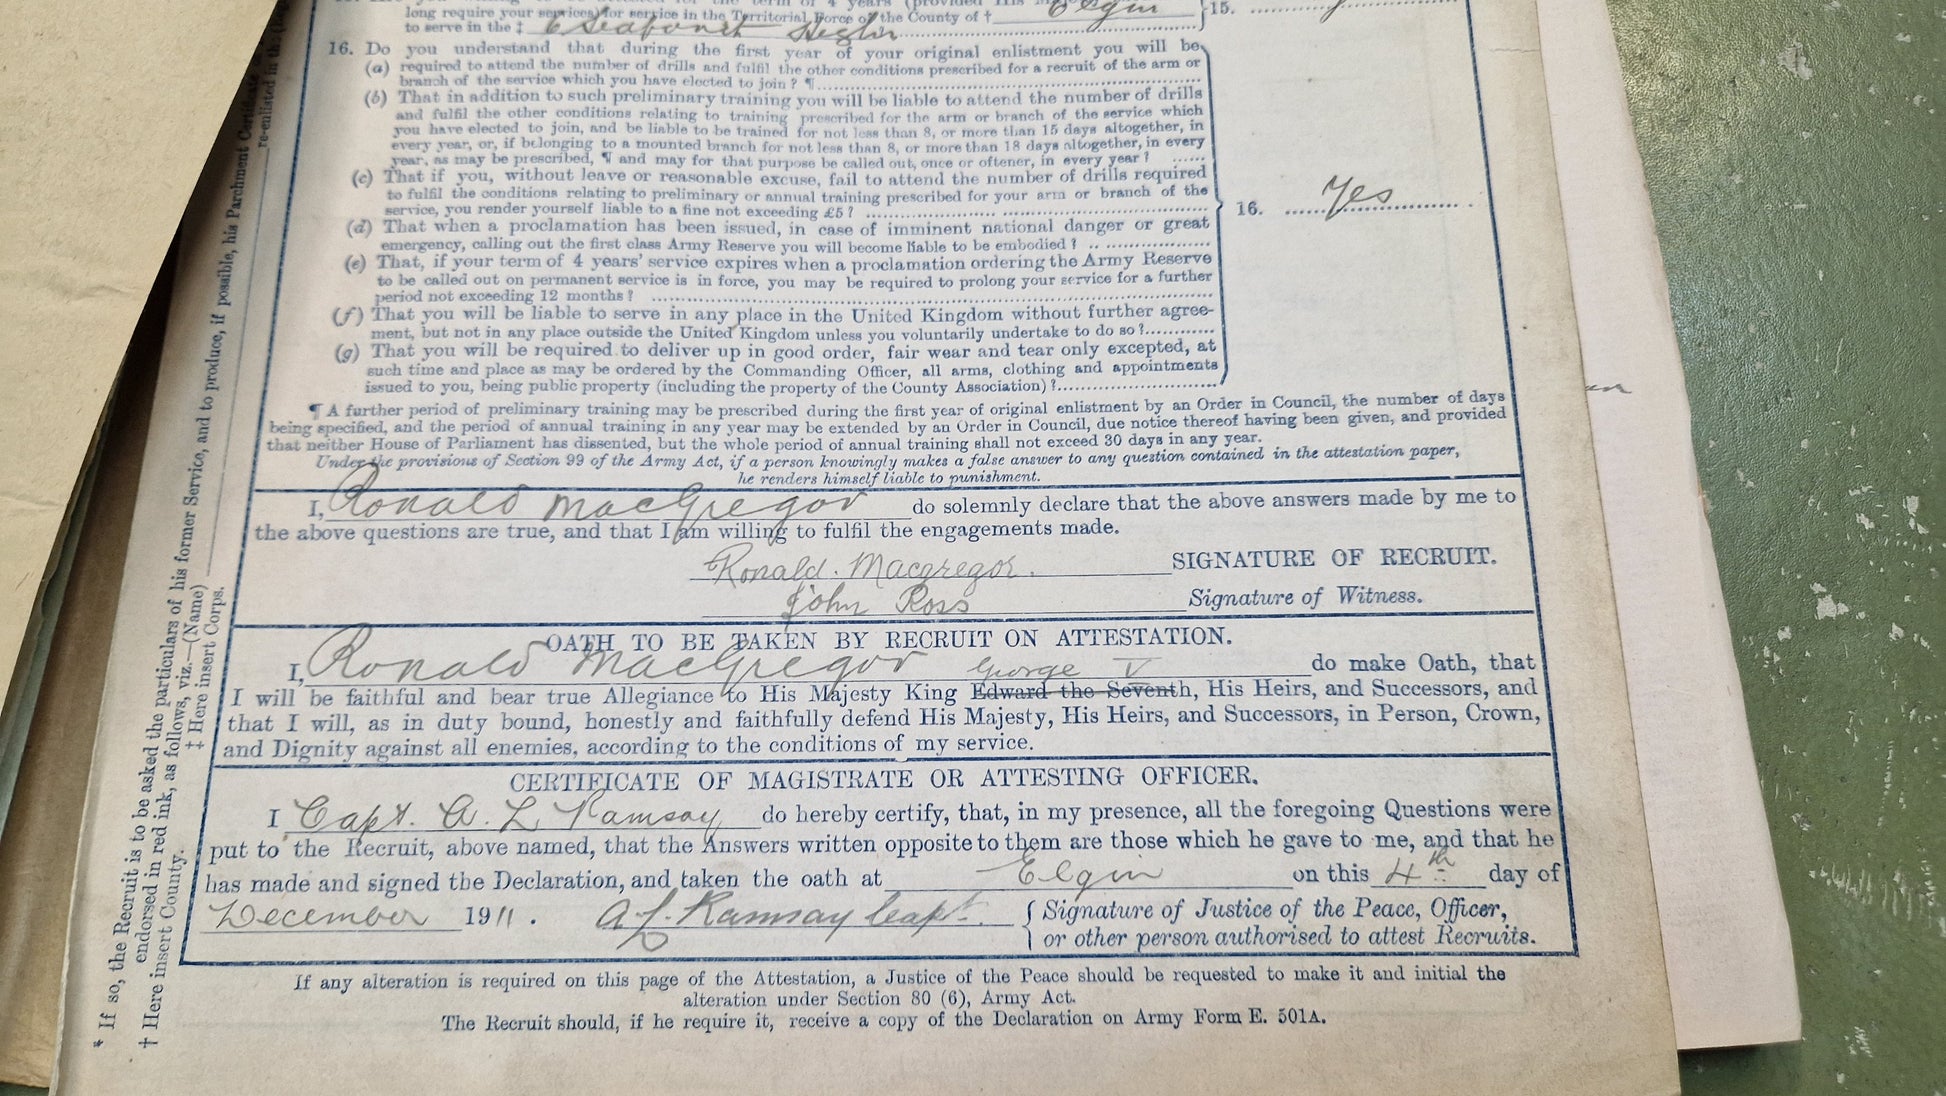 long require your services) for service in the Territorial Force of the County of † Elgin } 15.
to serve in the ‡ 6 Seaforth
16. Do you understand that during the first year of your original enlistment you will be
(a) required to attend the number of drills and fulfil the other conditions prescribed for a recruit of the arm or
branch of the service which you have elected to join? ¶
(b) That in addition to such preliminary training you will be liable to attend the number of drills
and fulfil the other conditions relating to training prescribed for the arm or branch of the service which
you have elected to join, and be liable to be trained for not less than 8, or more than 15 days altogether, in
every year, or, if belonging to a mounted branch for not less than 8, or more than 18 days altogether, in every
year, as may be prescribed, ¶ and may for that purpose be called out, once or oftener, in every year?
(c) That if you, without leave or reasonable excuse, fail to attend the number of drills required
to fulfil the conditions relating to preliminary or annual training prescribed for your arm or branch of the
service, you render yourself liable to a fine not exceeding £5?
16. Yes
(d) That when a proclamation has been issued, in case of imminent national danger or great
emergency, calling out the first class Army Reserve you will become liable to be embodied?
(e) That, if your term of 4 years' service expires when a proclamation ordering the Army Reserve
to be called out on permanent service is in force, you may be required to prolong your service for a further
period not exceeding 12 months?
(f) That you will be liable to serve in any place in the United Kingdom without further agree-
ment, but not in any place outside the United Kingdom unless you voluntarily undertake to do so?
(g) That you will be required to deliver up in good order, fair wear and tear only excepted, at
such time and place as may be ordered by the Commanding Officer, all arms, clothing and appointments
issued to you, being public property (including the property of the County Association)?
¶ A further period of preliminary training may be prescribed during the first year of original enlistment by an Order in Council, the number of days
being specified, and the period of annual training in any year may be extended by an Order in Council, due notice thereof having been given, and provided
that neither House of Parliament has dissented, but the whole period of annual training shall not exceed 30 days in any year.
Under the provisions of Section 99 of the Army Act, if a person knowingly makes a false answer to any question contained in the attestation paper,
he renders himself liable to punishment.
I, Ronald MacGregor do solemnly declare that the above answers made by me to
the above questions are true, and that I am willing to fulfil the engagements made.
Ronald. Macgregor. SIGNATURE OF RECRUIT.
John Ross Signature of Witness.
OATH TO BE TAKEN BY RECRUIT ON ATTESTATION.
I, Ronald MacGregor George V do make Oath, that
I will be faithful and bear true Allegiance to His Majesty King Edward the Seventh, His Heirs, and Successors, and
that I will, as in duty bound, honestly and faithfully defend His Majesty, His Heirs, and Successors, in Person, Crown,
and Dignity against all enemies, according to the conditions of my service.
CERTIFICATE OF MAGISTRATE OR ATTESTING OFFICER.
I Capt. A. L Ramsay do hereby certify, that, in my presence, all the foregoing Questions were
put to the Recruit, above named, that the Answers written opposite to them are those which he gave to me, and that he
has made and signed the Declaration, and taken the oath at Elgin on this 4th day of
December 1911. A L. Ramsay Capt. { Signature of Justice of the Peace, Officer,
or other person authorised to attest Recruits.
If any alteration is required on this page of the Attestation, a Justice of the Peace should be requested to make it and initial the
alteration under Section 80 (6), Army Act.
The Recruit should, if he require it, receive a copy of the Declaration on Army Form E. 501A.
* If so, the Recruit is to be asked the particulars of his former Service, and to produce, if possible, his Parchment Certificate
endorsed in red ink, as follows, viz.—(Name) re-enlisted in the
† Here insert County. ‡ Here insert Corps.